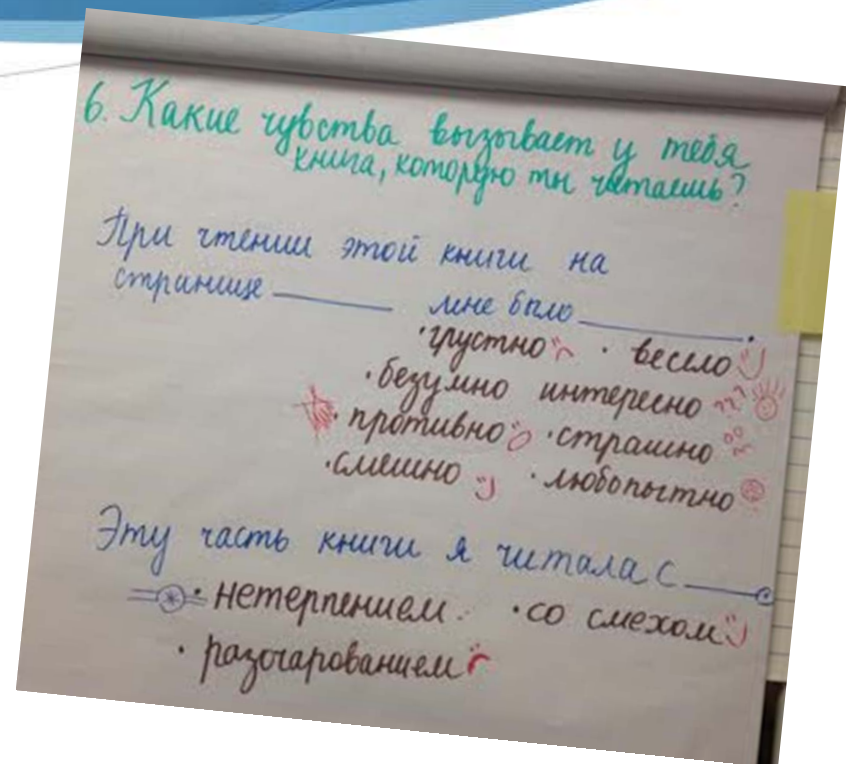 6. Какие чувства вызывает у тебя
книга, которую ты читаешь?
При чтении этой книги на
странице ______ мне было ________.
· грустно · весело
· безумно интересно ???
· противно · страшно
· смешно · любопытно
Эту часть книги я читала с ____
· нетерпением · со смехом
· разочарованием